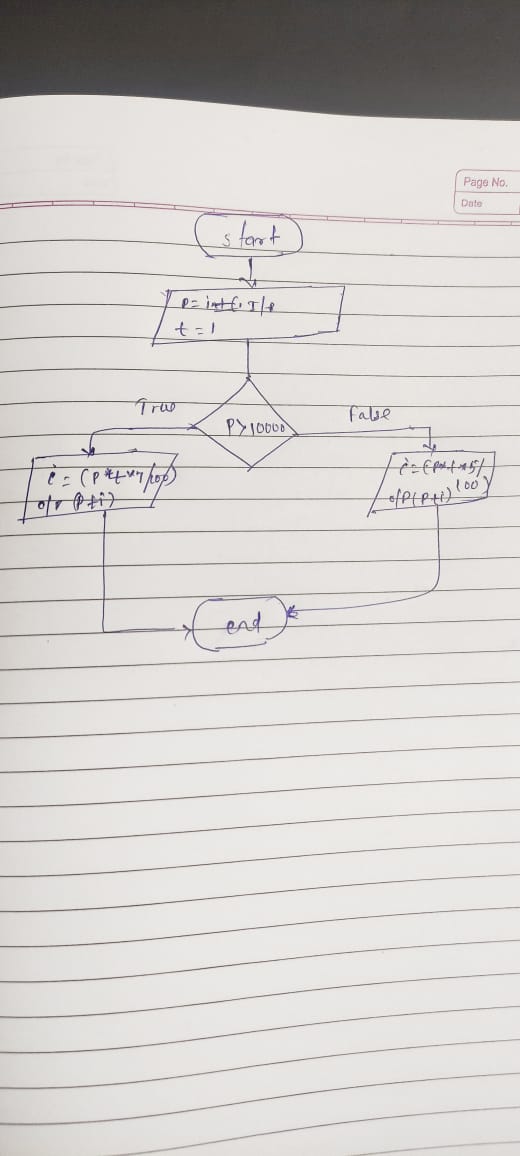 Page No.
Date
start
P = int(, I/P
t = 1
True
False
P>10000
i = (P*t*7/100)
o/P (P+i)
i = (P*t*5/
100)
o/P(P+i)
end